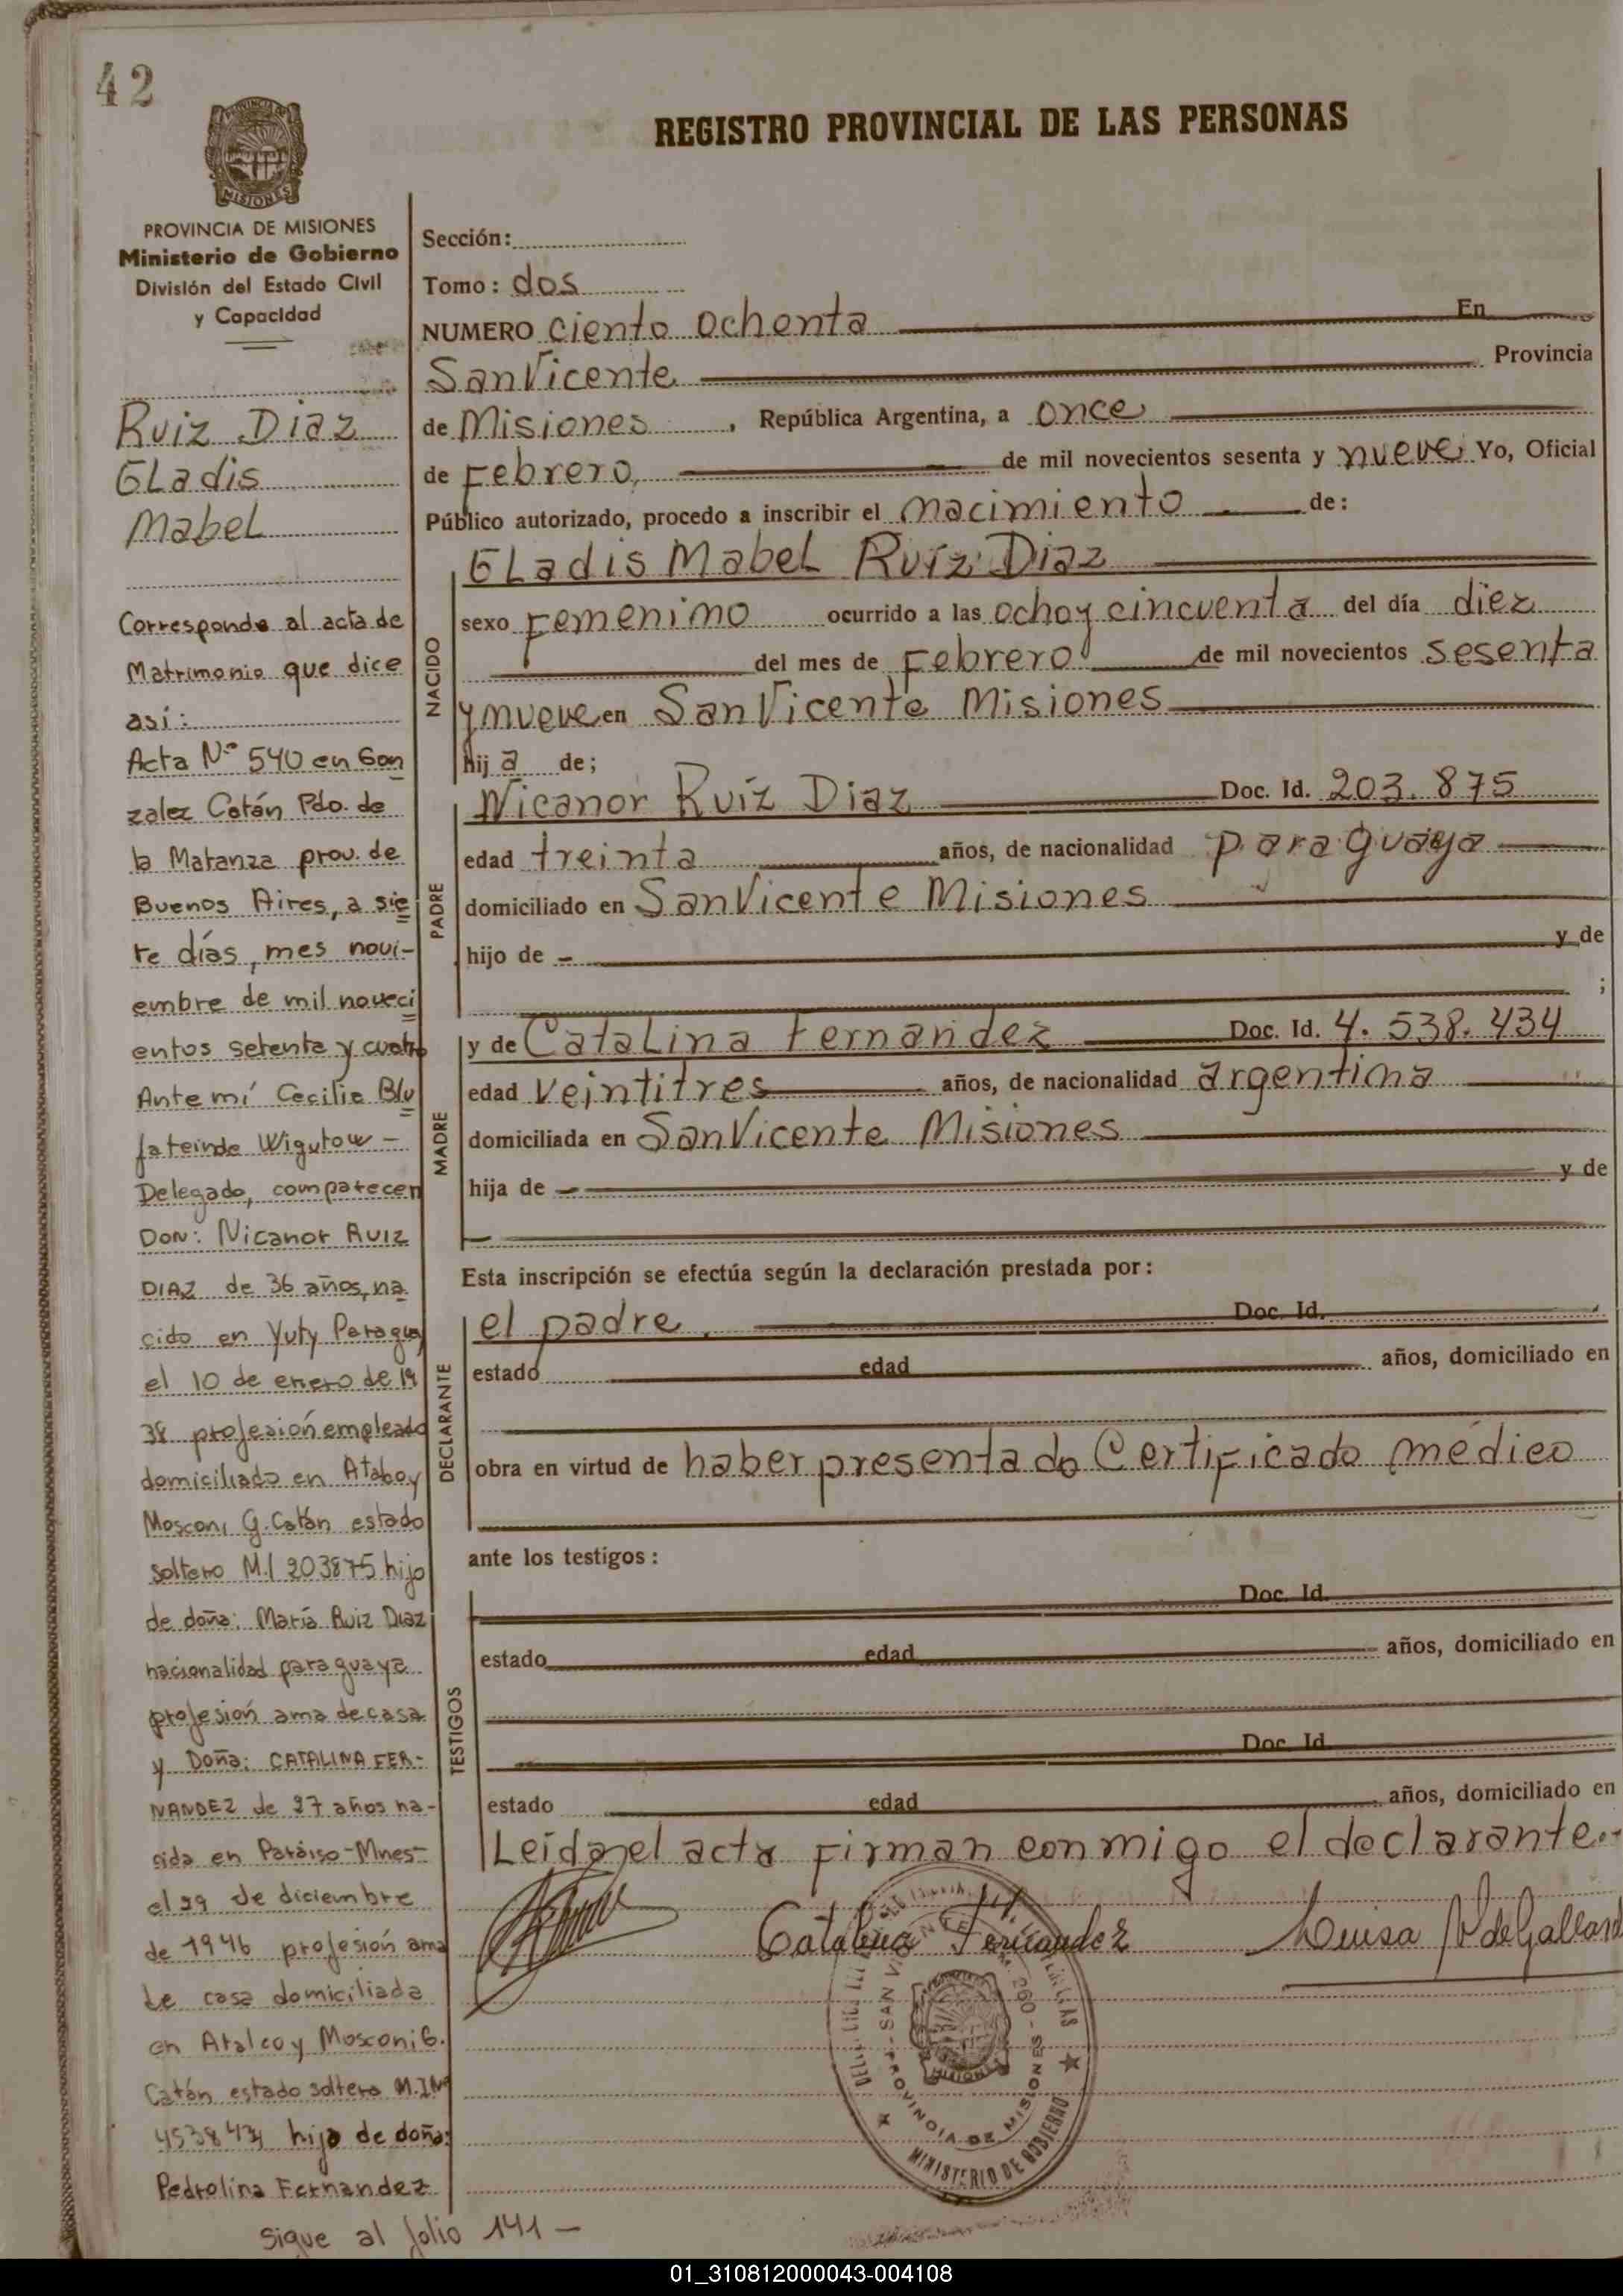 42
REGISTRO PROVINCIAL DE LAS PERSONAS
MISIONES
PROVINCIA DE MISIONES
Ministerio de Gobierno
División del Estado Civil
y Capacidad
Ruiz Diaz
GLadis
MabeL
Corresponde al acta de
Matrimonio que dice
así:
Acta Nº 540 en Gon
zalez Catán Pdo. de
la Matanza prov. de
Buenos Aires, a sie
te días, mes novi-
embre de mil noveci
entos setenta y cuatro
Ante mí Cecilia Blu
fateinde Wigutow -
Delegado, comparecen
DON: Nicanor RUIZ
DIAZ de 36 años, na
cido en Yuty Paraguay
el 10 de enero de 19
38 profesión empleado
domiciliado en
Mosconi G. Catán estado
soltero M.I 203875 hijo
de doña: María Ruiz Diaz
nacionalidad paraguaya
profesión ama de casa
y Doña: CATALINA FER-
NANDEZ de 27 años na-
cida en Paraiso-Mnes-
el 29 de diciembre
de 1946 profesión ama
de casa domiciliada
en Atalcoy Mosconi G.
Catán, estado soltera M.I Nº
hija de doña:
Pedrolina Fernandez
Sigue al folio 141 -
Sección:
Tomo: dos
NUMERO ciento ochenta En
San Vicente Provincia
de Misiones, República Argentina, a once
de Febrero, de mil novecientos sesenta y nueve Yo, Oficial
Público autorizado, procedo a inscribir el nacimiento de:
NACIDO
GLadis MabeL Ruiz Diaz
sexo Femenino ocurrido a las ocho y cincuenta del día diez
del mes de Febrero de mil novecientos sesenta
y nueve en San Vicente Misiones
hija de;
PADRE
Nicanor Ruiz Diaz Doc. Id. 203.875
edad treinta años, de nacionalidad paraguaya
domiciliado en San Vicente Misiones
hijo de - y de
;
MADRE
y de CataLina Fernandez Doc. Id. 4.538.434
edad veintitres años, de nacionalidad argentina
domiciliada en San Vicente Misiones
hija de - y de
Esta inscripción se efectúa según la declaración prestada por:
DECLARANTE
el padre. Doc. Id.
estado edad años, domiciliado en
obra en virtud de haber presentado Certificado médico
ante los testigos:
TESTIGOS
Doc. Id.
estado edad años, domiciliado en
Doc. Id.
estado edad años, domiciliado en
Leída el acta firman conmigo el declarante.-
Catalina Fernandez
Luisa
SAN VICENTE
PROVINCIA DE MISIONES
MISIONES
MINISTERIO DE GOBIERNO
01_310812000043-004108